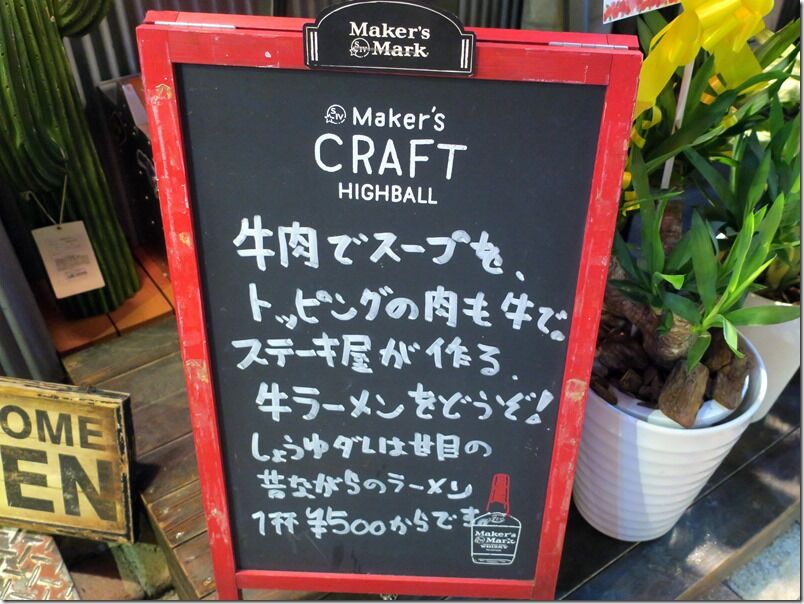 Maker's
SIV Mark
SIV Maker's
CRAFT
HIGHBALL
牛肉でスープを、
トッピングの肉も牛で。
ステーキ屋が作る、
牛ラーメンをどうぞ!
しょうゆダレは甘目の
昔ながらのラーメン
1杯¥500からです。
Maker's
SIV Mark
WHISKY
OME
EN